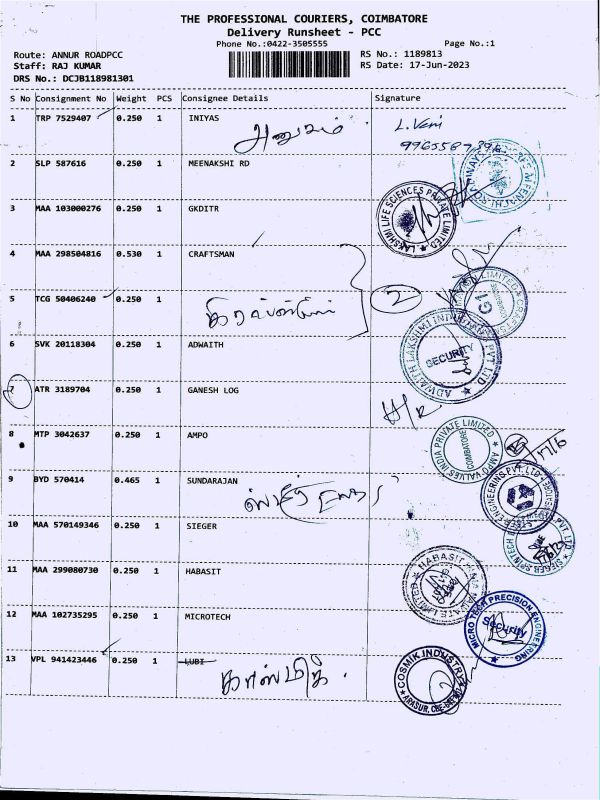 THE PROFESSIONAL COURIERS, COIMBATORE
Delivery Runsheet - PCC
Phone No.:0422-3505555
Page No.:1
Route: ANNUR ROADPCC
RS No.: 1189813
Staff: RAJ KUMAR
RS Date: 17-Jun-2023
DRS No.: DCJB118981301
S No Consignment No Weight PCS Consignee Details Signature
1 TRP 7529407 0.250 1 INIYAS
L. Veni
2 SLP 587616 0.250 1 MEENAKSHI RD
3 MAA 103000276 0.250 1 GKDITR
LAKSHMI LIFE SCIENCES PRIVATE LIMITED
4 MAA 298504816 0.530 1 CRAFTSMAN
5 TCG 50406240 0.250 1
2
6 SVK 20118304 0.250 1 ADWAITH
ADWAITH LAKSHMI PVT LTD
SECURITY
7 ATR 3189704 0.250 1 GANESH LOG
H/R
8 MTP 3042637 0.250 1 AMPO
AMPO VALVES INDIA PRIVATE LIMITED
COIMBATORE
17/6
9 BYD 570414 0.465 1 SUNDARAJAN
10 MAA 570149346 0.250 1 SIEGER
SIEGER SPINTECH PVT LTD
11 MAA 299080730 0.250 1 HABASIT
12 MAA 102735295 0.250 1 MICROTECH
MICRO TECH PRECISION ENGINEERING
Security
13 VPL 941423446 0.250 1 LUBI
COSMIK INDUSTRI
ARASUR, CBE